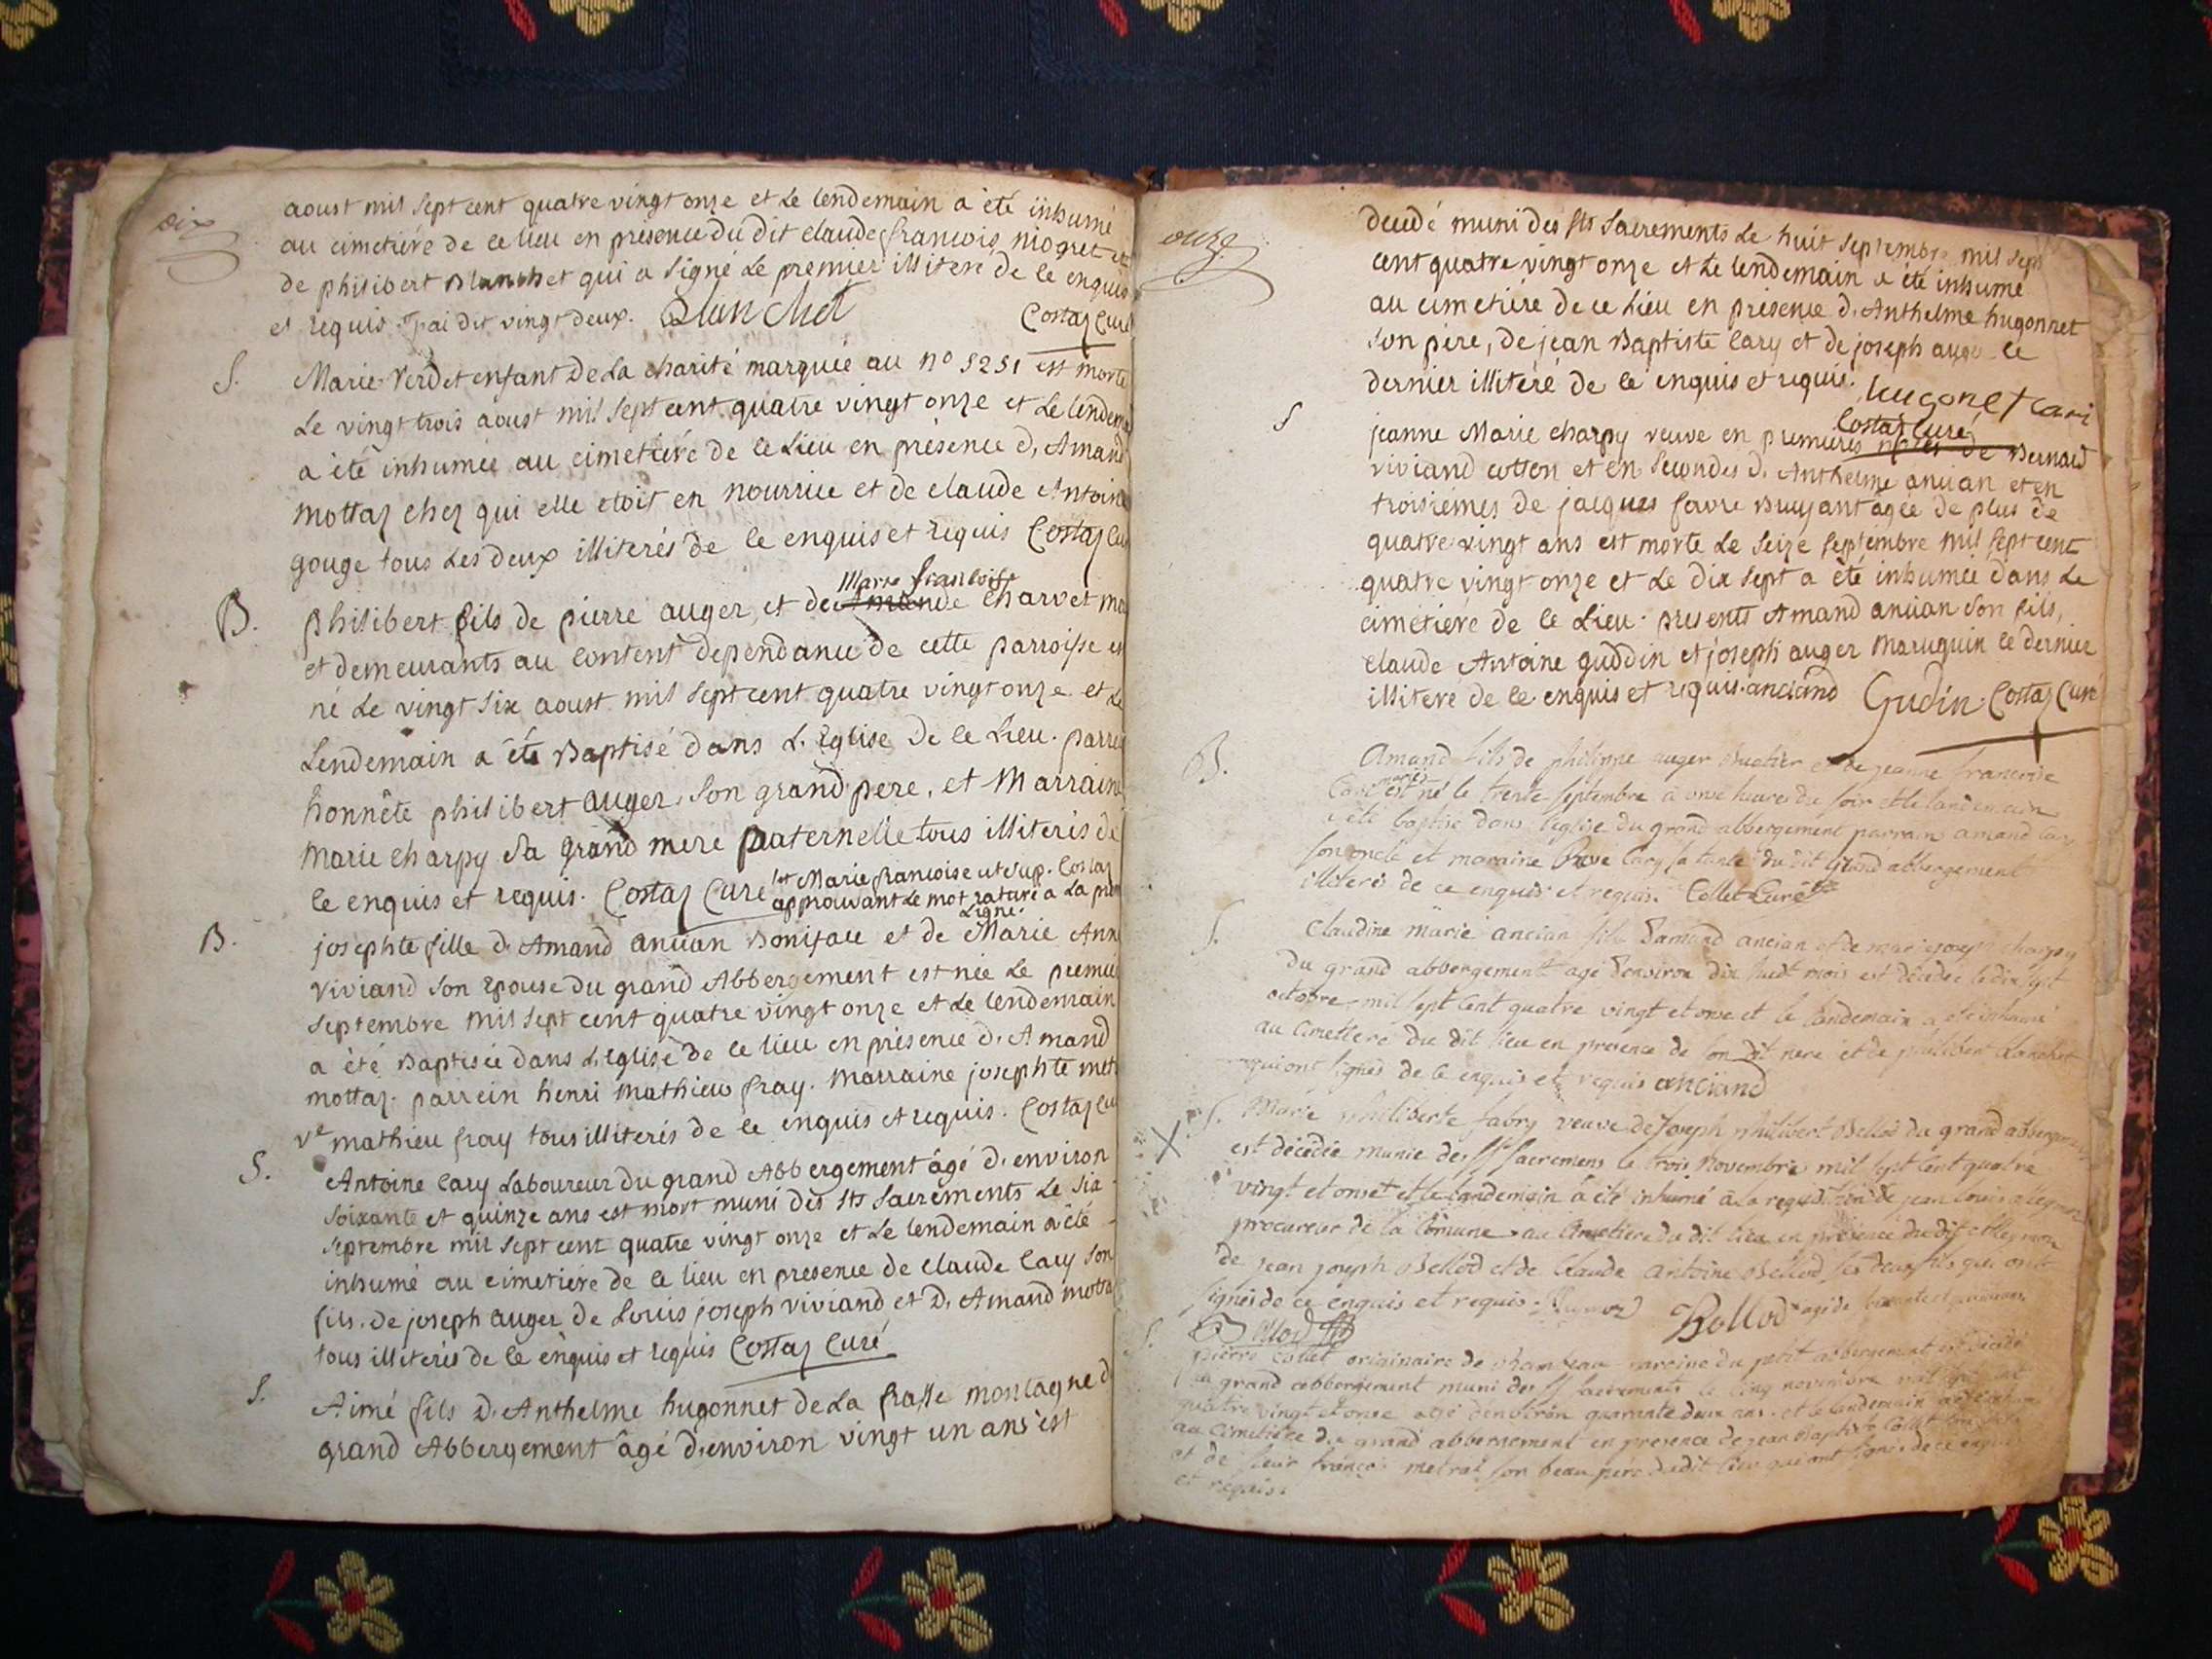 dix
aoust mil sept cent quatre vingt onze et Le lendemain a été inhumé
au cimetiére de ce lieu en présence du dit claude françois niogret et
de philibert Blanchet qui a signé Le premier illiteré de ce enquis
et requis. j'ai dit vingt deux. Blanchet Costaz Curé
S. Marie Verdet enfant De La charité marquée au no 5251 est morte
Le vingt trois aoust mil sept cent quatre vingt onze et Le lendem
a été inhumée au cimetiére de ce Lieu en présence d'Amand
mottaz chez qui elle etoit en nourrice et de claude Antoine
gouge tous Les deux illiterés de ce enquis et requis Costaz Cu
Marie françoise
B. philibert fils de pierre auger, et de Amande charvet ma
et demeurants au Content dependance de cette parroisse e
né Le vingt six aoust mil sept cent quatre vingt onze et Le
Lendemain a été Baptisé dans L'Eglise De ce Lieu. parre
honnête philibert auger son grand pere, et Marraine
Marie charpy sa grand mere paternelle tous illiterés de
ce enquis et requis. Costaz Curé et Marie françoise ut sup. Costaz
approuvant Le mot raturé a La pre
Ligne.
B. josephte fille d'Amand ancian Boniface et de Marie Ann
viviand son Epouse du grand Abbergement est née Le premie
septembre mil sept cent quatre vingt onze et Le lendemain
a été Baptisée dans L'Eglise de ce lieu en présence d'Amand
mottaz. parrein henri mathieu fray. Marraine josephte met
ve mathieu fray tous illiterés de ce enquis et requis. Costaz Cu
S. Antoine Cary Laboureur du grand Abbergement âgé d'environ
soixante et quinze ans est mort muni des sts sacrements Le six
septembre mil sept cent quatre vingt onze et Le lendemain a été
inhumé au cimetiére de ce lieu en presence de claude Cary son
fils. de joseph auger de Louis joseph viviand et D'Amand motta
tous illiterés de ce enquis et requis Costaz Curé
S. Aimé fils D'Anthelme hugonnet de La frasse montagne d
grand Abbergement âgé d'environ vingt un ans est
onze
decedé muni des sts sacrements Le huit septembre mil sept
cent quatre vingt onze et Le lendemain a été inhumé
au cimetiére de ce Lieu en présence d'Anthelme hugonnet
son pére, de jean Baptiste Cary et de joseph auger ce
dernier illiteré de ce enquis et requis. hugonet cari
Costaz Curé
S jeanne Marie charpy veuve en premieres noces de Bernard
viviand cotton et en secondes d'Anthelme ancian et en
troisiemes de jacques favre Bruyant âgée de plus de
quatre vingt ans est morte Le seize septembre mil sept cent
quatre vingt onze et Le dix sept a été inhumée dans Le
cimetiére de ce Lieu. presents Amand ancian son fils,
claude Antoine guddin et joseph auger Maruquin ce dernier
illiteré de ce enquis et requis. anciand Gudin. Costaz Curé
B. Amand fils de philippe auger et de jeanne francoise
Cari est né le trente septembre à onze heures du soir et le landemain
a été baptisé dans l'église du grand abbergement parrain amand Cary
son oncle et maraine Cary sa tante du dit grand abbergement
illiterés de ce enquis et requis. Collet Curé
S. Claudine marie ancian fille d'amand ancian et de marie joseph charpy
du grand abbergement agé d'environ dix huit mois est décédée le dix sept
octobre mil sept cent quatre vingt et onze et le landemain a été inhumé
au cimetiere du dit lieu en presence de son dit pere et de philibert blanchet
qui ont signés de ce enquis et requis anciand
X S. Marie philiberte fabry veuve de Joseph philibert Bellod du grand abbergement
est décédée munie des sts sacremens le trois novembre mil sept cent quatre
vingt et onze et le landemain a été inhumé à la requisition de jean louis
procureur de la Comune au cimetiere du dit lieu en présence du dit
de jean joseph Bellod et de Claude Antoine Bellod ses deux fils qui ont
signés de ce enquis et requis. Bellod agé de soixante et
Bellod
S. pierre Collet originaire de paroisse du petit abbergement est décédé
au grand abbergement muni des sts sacrements le cinq novembre mil sept cent
quatre vingt et onze agé d'environ quarante deux ans. et le landemain a été inhumé
au cimetiére du grand abbergement en presence de jean Baptiste Collet son
et de sieur françois metral son beau pére du dit lieu qui ont signés de ce enquis
et requis.